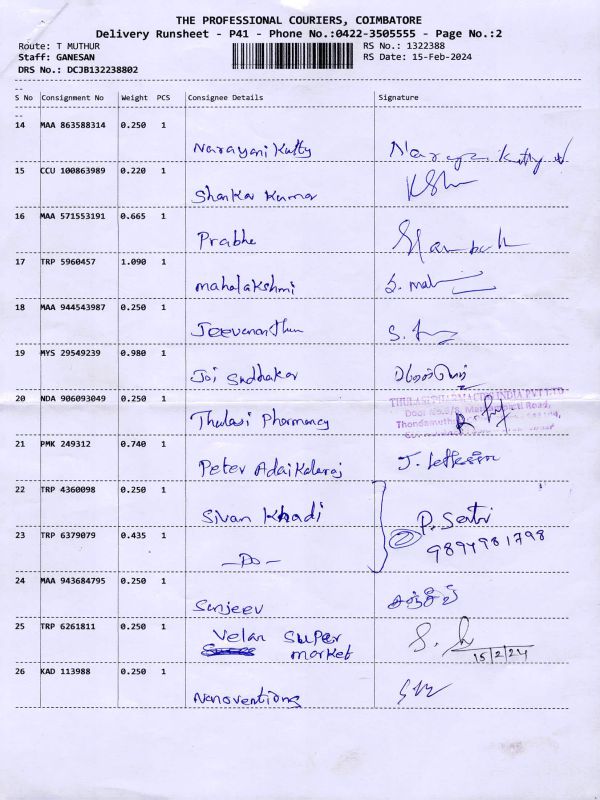 THE PROFESSIONAL COURIERS, COIMBATORE
Delivery Runsheet - P41 - Phone No.:0422-3505555 - Page No.:2
Route: T MUTHUR RS No.: 1322388
Staff: GANESAN RS Date: 15-Feb-2024
DRS No.: DCJB132238802
S No Consignment No Weight PCS Consignee Details Signature
14 MAA 863588314 0.250 1
Narayani Kutty Narayani Kutty
15 CCU 100863989 0.220 1
Shankar Kumar
16 MAA 571553191 0.665 1
Prabhe
17 TRP 5960457 1.090 1
mahalakshmi S. mah
18 MAA 944543987 0.250 1
Jeevananthan
19 MYS 29549239 0.980 1
Jai Sudhakar
20 NDA 906093049 0.250 1
THULASI PHARMACIES INDIA PVT LTD
Thulasi Pharmancy
21 PMK 249312 0.740 1
Peter Adaikalaraj J. Jefferson
22 TRP 4360098 0.250 1
Sivan Khadi P. Sentri
23 TRP 6379079 0.435 1
9894981798
-Do-
24 MAA 943684795 0.250 1
Sanjeev சஞ்சீவ்
25 TRP 6261811 0.250 1
Velan Super
market 15/2/24
26 KAD 113988 0.250 1
Nanoventions